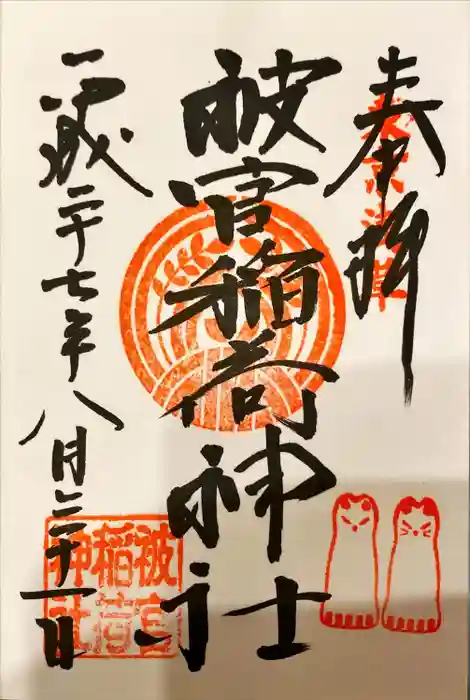 奉拝
東京浅草
被官稲荷神社
平成二十七年八月三十一日
被官
稲荷
神社